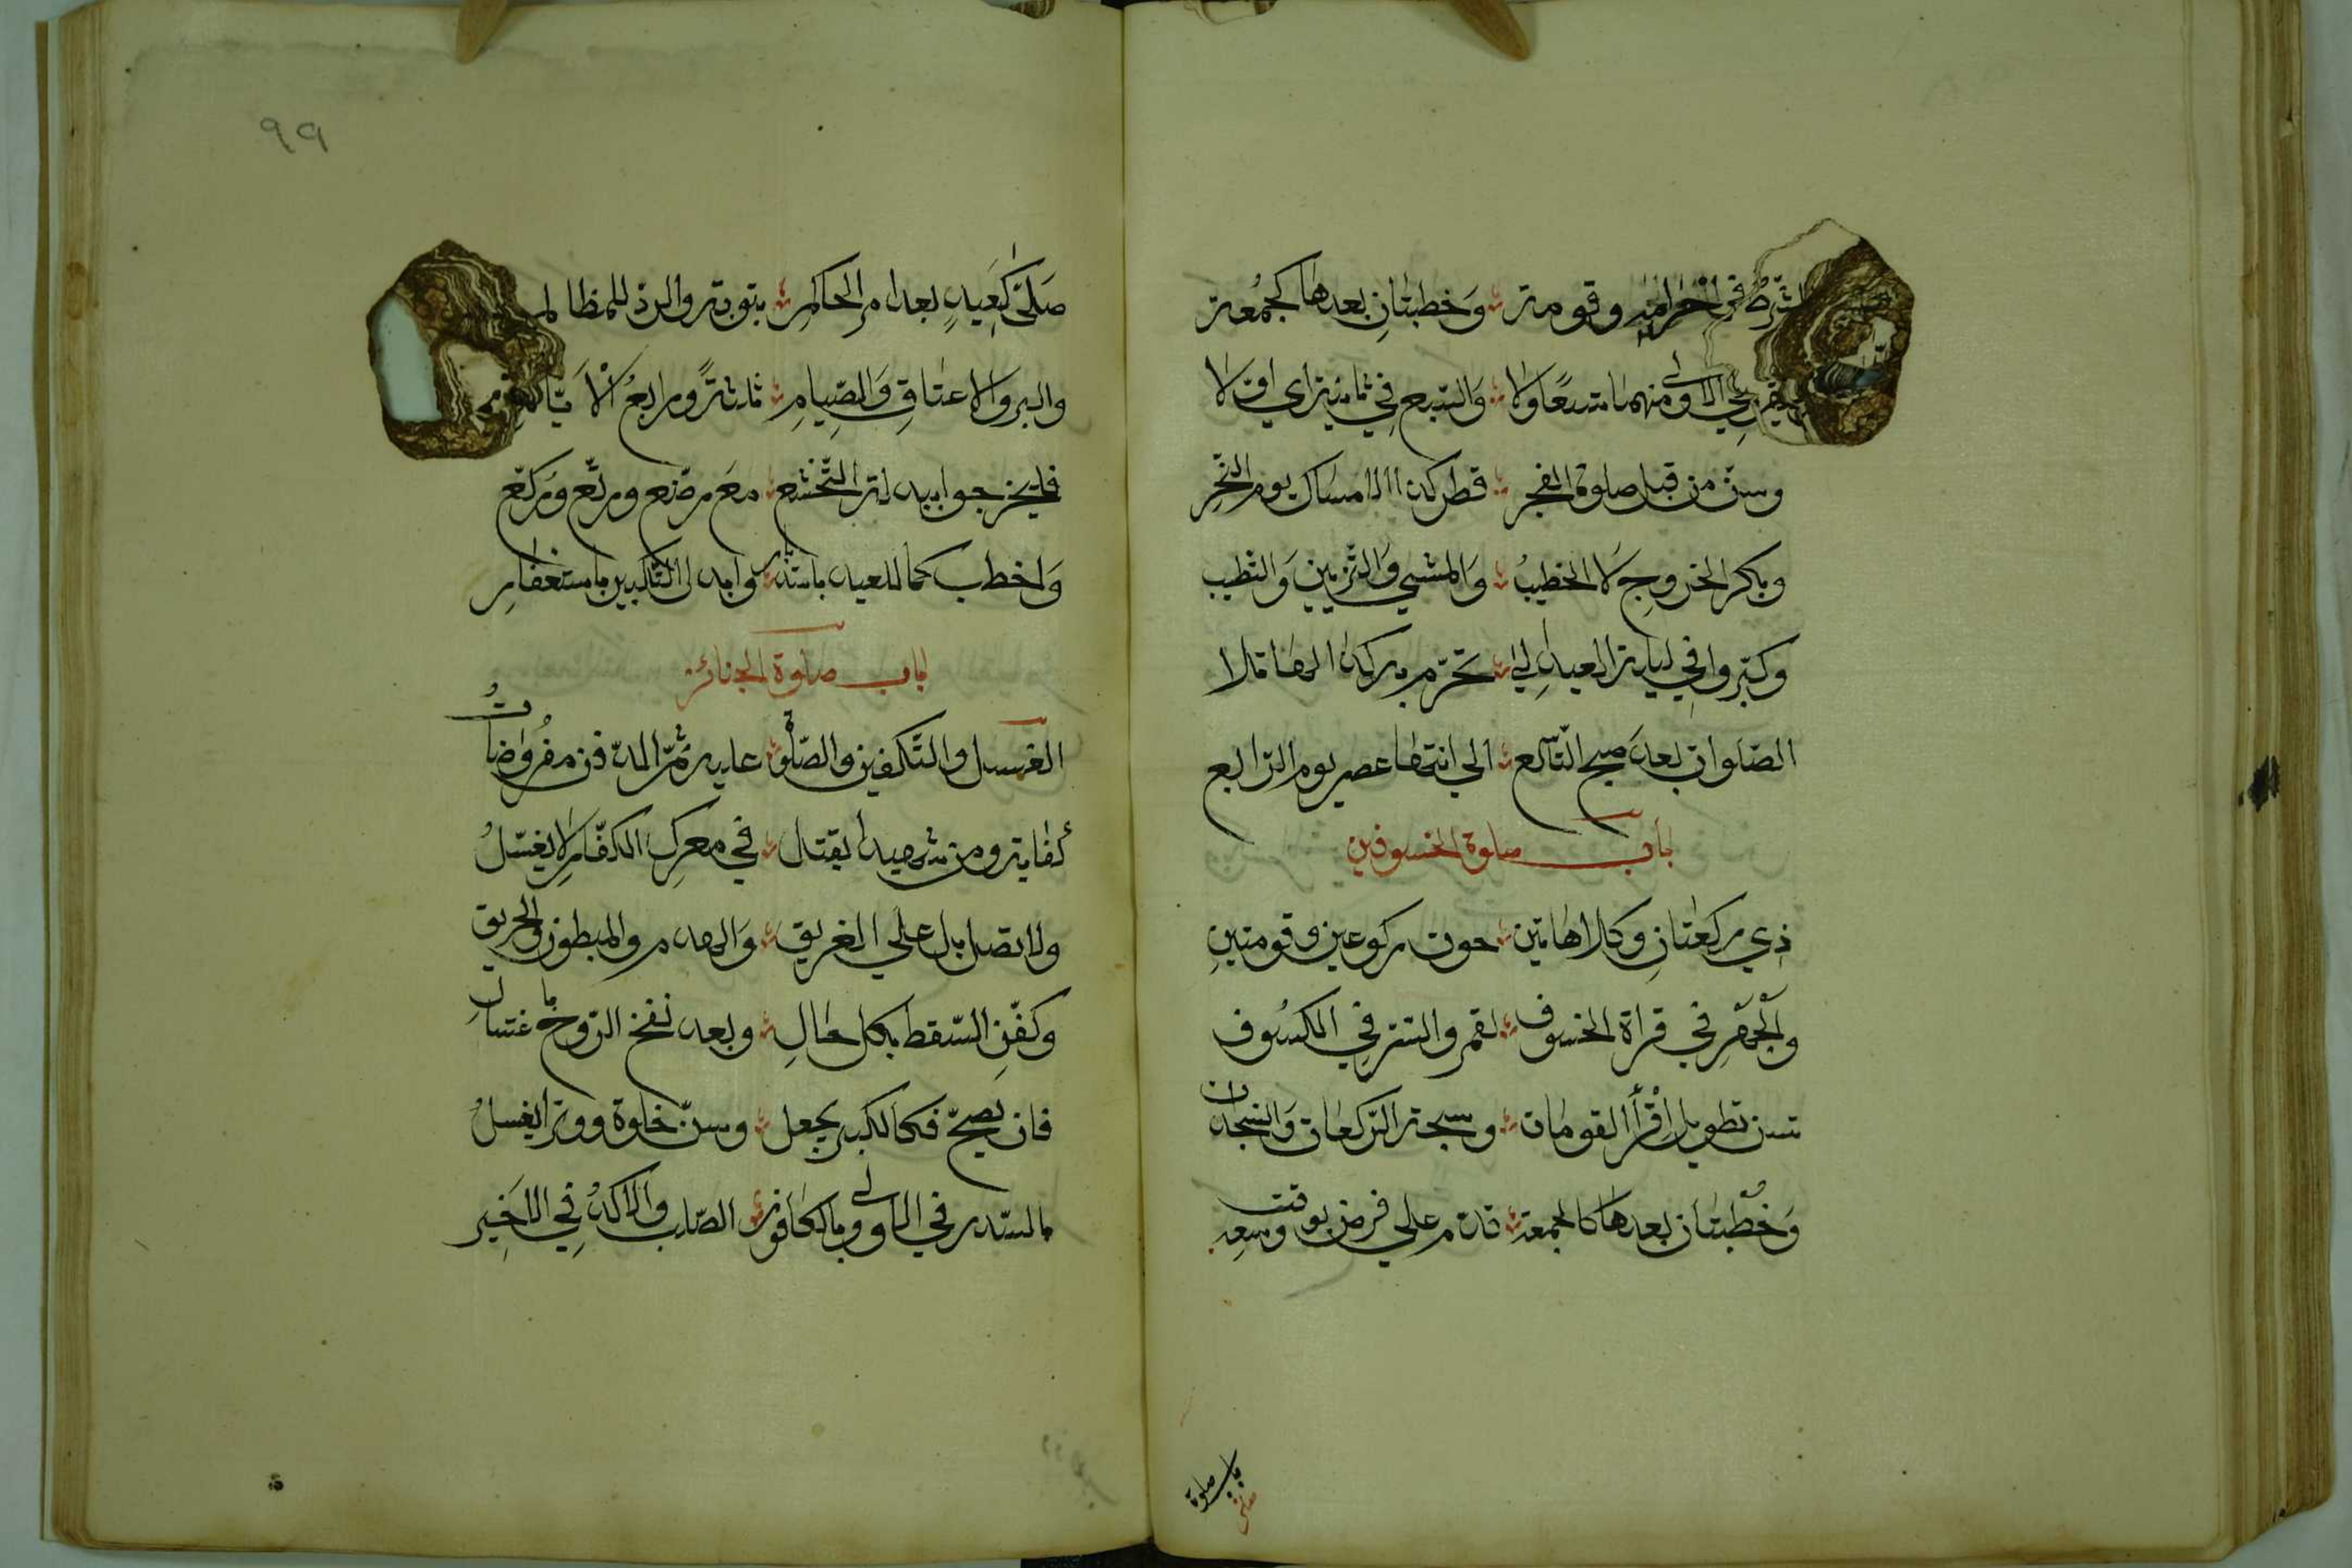 الشرط في احرامه وقومة وخطبتان بعدها كجمعة
في الاولى منهما سبعا ولا والسبع في ثانية اي اولا
وسن من قبل صلوة الفجر فطر كذا الامساك يوم النحر
وبكر الخروج لا الخطيب والمشي والتزيين والتطيب
وكبروا في ليلة العيد الى تحرم بركذا لها تلا
الصلوات بعد صبح التاسع الى انتها عصر يوم الرابع
باب صلوة الخسوفين
ذي ركعتان وكلا هاتين حوت ركوعين وقومتين
والجهر في قراة الخسوف لقمر والستر في الكسوف
تسن تطويل اقرأ القومات وسبحة الركعات والسجدات
وخطبتان بعدها كالجمعة قدم على فرض بوقت وسعه
باب صلوة
صلى
٩٩
صلى كعيد بعد امر الحاكم بتوبة والرد للمظالم
والبر والاعتاق والصيام ثلثة ورابع الايام
فليخرجوا ببذلة التخشع مع رضع ورتع وركع
واخطب كما للعيد باستدبار وابدل التكبير باستغفار
باب صلوة الجنائز
الغسل والتكفين والصلوة عليه ثم الدفن مفروضات
كفاية ومن شهيدا يقتل في معرك الكفار لا يغسل
ولا يصل بل على الغريق والهدم والمبطون والحريق
وكفن السقط بكل حال وبعد نفخ الروح باغتسال
فان يصيح فكالكبير يجعل وسن خلوة ووترا يغسل
بالسدر في الاولى وبالكافور الصلب والاكد في الاخير